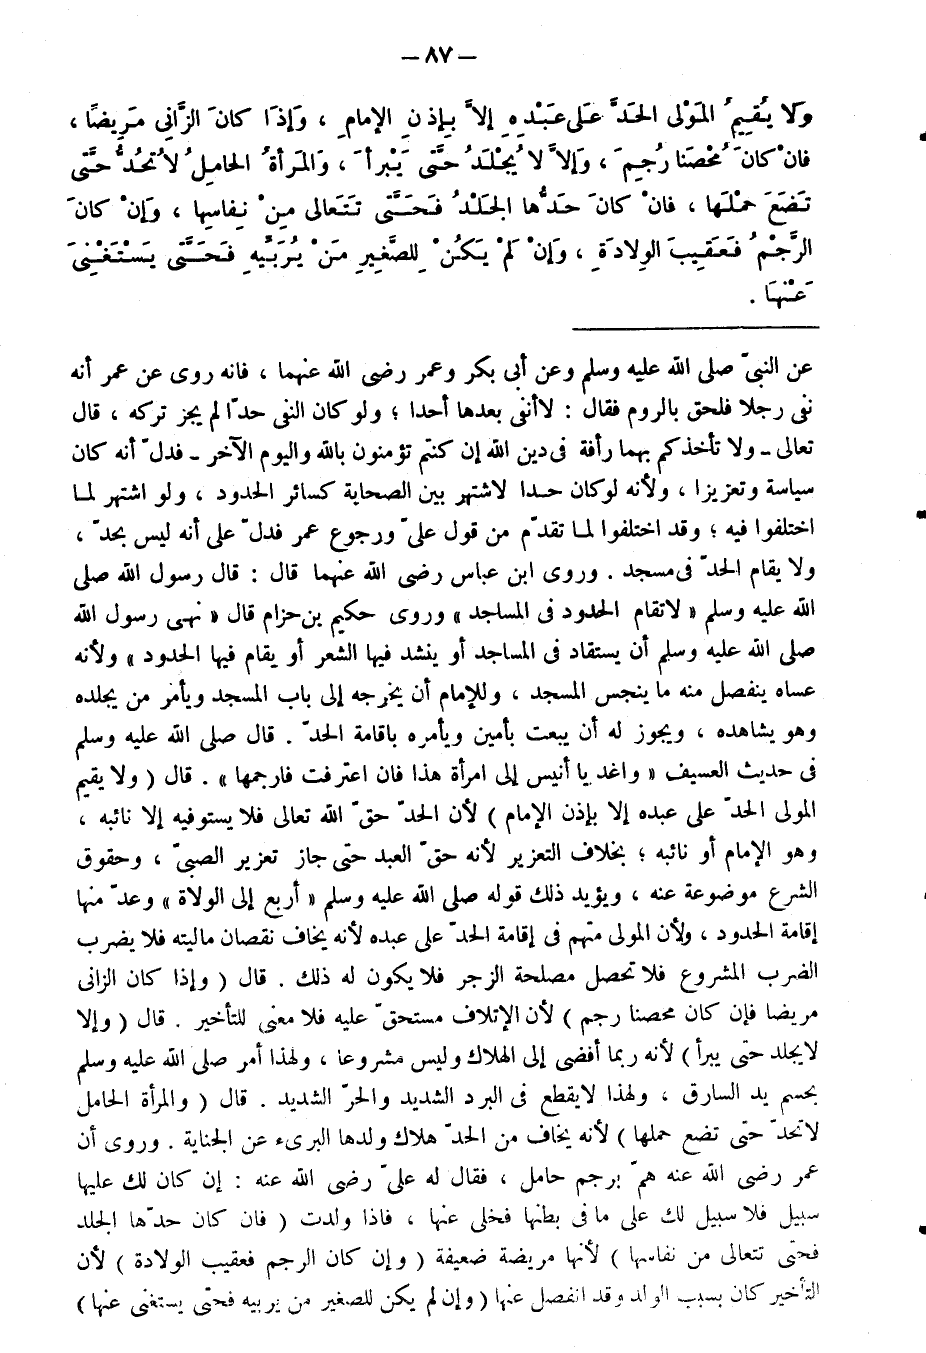 — ٨٧ —
وَلا يُقِيمُ المَوْلى الحَدَّ عَلى عَبْدِهِ إلاَّ بِإذنِ الإمامِ ، وَإذَا كانَ الزَّانِى مَرِيضًا ،
فانْ كانَ مُحْصَنا رُجِمَ ، وَإلاَّ لا يُجْلَدُ حَتَّى يَبْرأَ ، وَالمَرأةُ الحامِلُ لا تُحَدُّ حَتَّى
تَضَعَ حمْلَها ، فانْ كانَ حَدُّها الجَلْدُ فَحَتَّى تَتَعالى مِنْ نِفاسِها ، وَإنْ كانَ
الرَّجْمُ فَعَقِيبَ الوِلادَةِ ، وَإنْ لَمْ يَكُنْ لِلصَّغِيرِ مَنْ يُرَبِّيهِ فَحَتَّى يَسْتَغْنِىَ
عَنْهَا .
عن النبىّ صلى الله عليه وسلم وعن أبى بكر وعمر رضى الله عنهما ، فانه روى عن عمر أنه
نفى رجلا فلحق بالروم فقال : لاأنفى بعدها أحدا ؛ ولو كان النفى حدّا لم يجز تركه ، قال
تعالى ـ ولا تأخذكم بهما رأفة فى دين الله إن كنتم تؤمنون بالله واليوم الآخر ـ فدلّ أنه كان
سياسة وتعزيزا ، ولأنه لوكان حدا لاشتهر بين الصحاية كسائر الحدود ، ولو اشتهر لما
اختلفوا فيه ؛ وقد اختلفوا لما تقدّم من قول علىّ ورجوع عمر فدلّ على أنه ليس بحدّ ،
ولا يقام الحدّ فى مسجد . وروى ابن عباس رضى الله عنهما قال : قال رسول الله صلى
الله عليه وسلم « لاتقام الحدود فى المساجد » وروى حكيم بن حزام قال « نهى رسول الله
صلى الله عليه وسلم أن يستقاد فى المساجد أو ينشد فيها الشعر أو يقام فيها الحدود » ولأنه
عساه ينفصل منه ما ينجس المسجد ، وللإمام أن يخرجه إلى باب المسجد ويأمر من يجلده
وهو يشاهده ، ويجوز له أن يبعت بأمين ويأمره باقامة الحدّ . قال صلى الله عليه وسلم
فى حديث العسيف « واغد يا أنيس إلى امرأة هذا فان اعترفت فارجمها » . قال ( ولا يقيم
المولى الحدّ على عبده إلا بإذن الإمام ) لأن الحدّ حقّ الله تعالى فلا يستوفيه إلا نائبه ،
وهو الإمام أو نائبه ؛ بخلاف التعزير لأنه حقّ العبد حتى جاز تعزير الصبىّ ، وحقوق
الشرع موضوعة عنه ، ويؤيد ذلك قوله صلى الله عليه وسلم « أربع إلى الولاة » وعدّ منها
إقامة الحدود ، ولأن المولى متهم فى إقامة الحدّ على عبده لأنه يخاف نقصان ماليته فلا يضرب
الضرب المشروع فلا تحصل مصلحة الزجر فلا يكون له ذلك . قال ( وإذا كان الزانى
مريضا فإن كان محصنا رجم ) لأن الإتلاف مستحقّ عليه فلا معنى للتأخير . قال ( وإلا
لايجلد حتى يبرأ ) لأنه ربما أفضى إلى الهلاك وليس مشروعا ، ولهذا أمر صلى الله عليه وسلم
بحسم يد السارق ، ولهذا لايقطع فى البرد الشديد والحرّ الشديد . قال ( والمرأة الحامل
لاتحدّ حتى تضع حملها ) لأنه يخاف من الحدّ هلاك ولدها البرىء عن الجناية . وروى أن
عمر رضى الله عنه همّ برجم حامل ، فقال له علىّ رضى الله عنه : إن كان لك عليها
سبيل فلا سبيل لك على ما فى بطنها فخلى عنها ، فاذا ولدت ( فان كان حدّها الجلد
فحتى تتعالى من نفاسها ) لأنها مريضة ضعيفة ( وإن كان الرجم فعقيب الولادة ) لأن
التأخير كان بسبب الولد وقد انفصل عنها ( وإن لم يكن للصغير من يربيه فحتى يستغنى عنها )